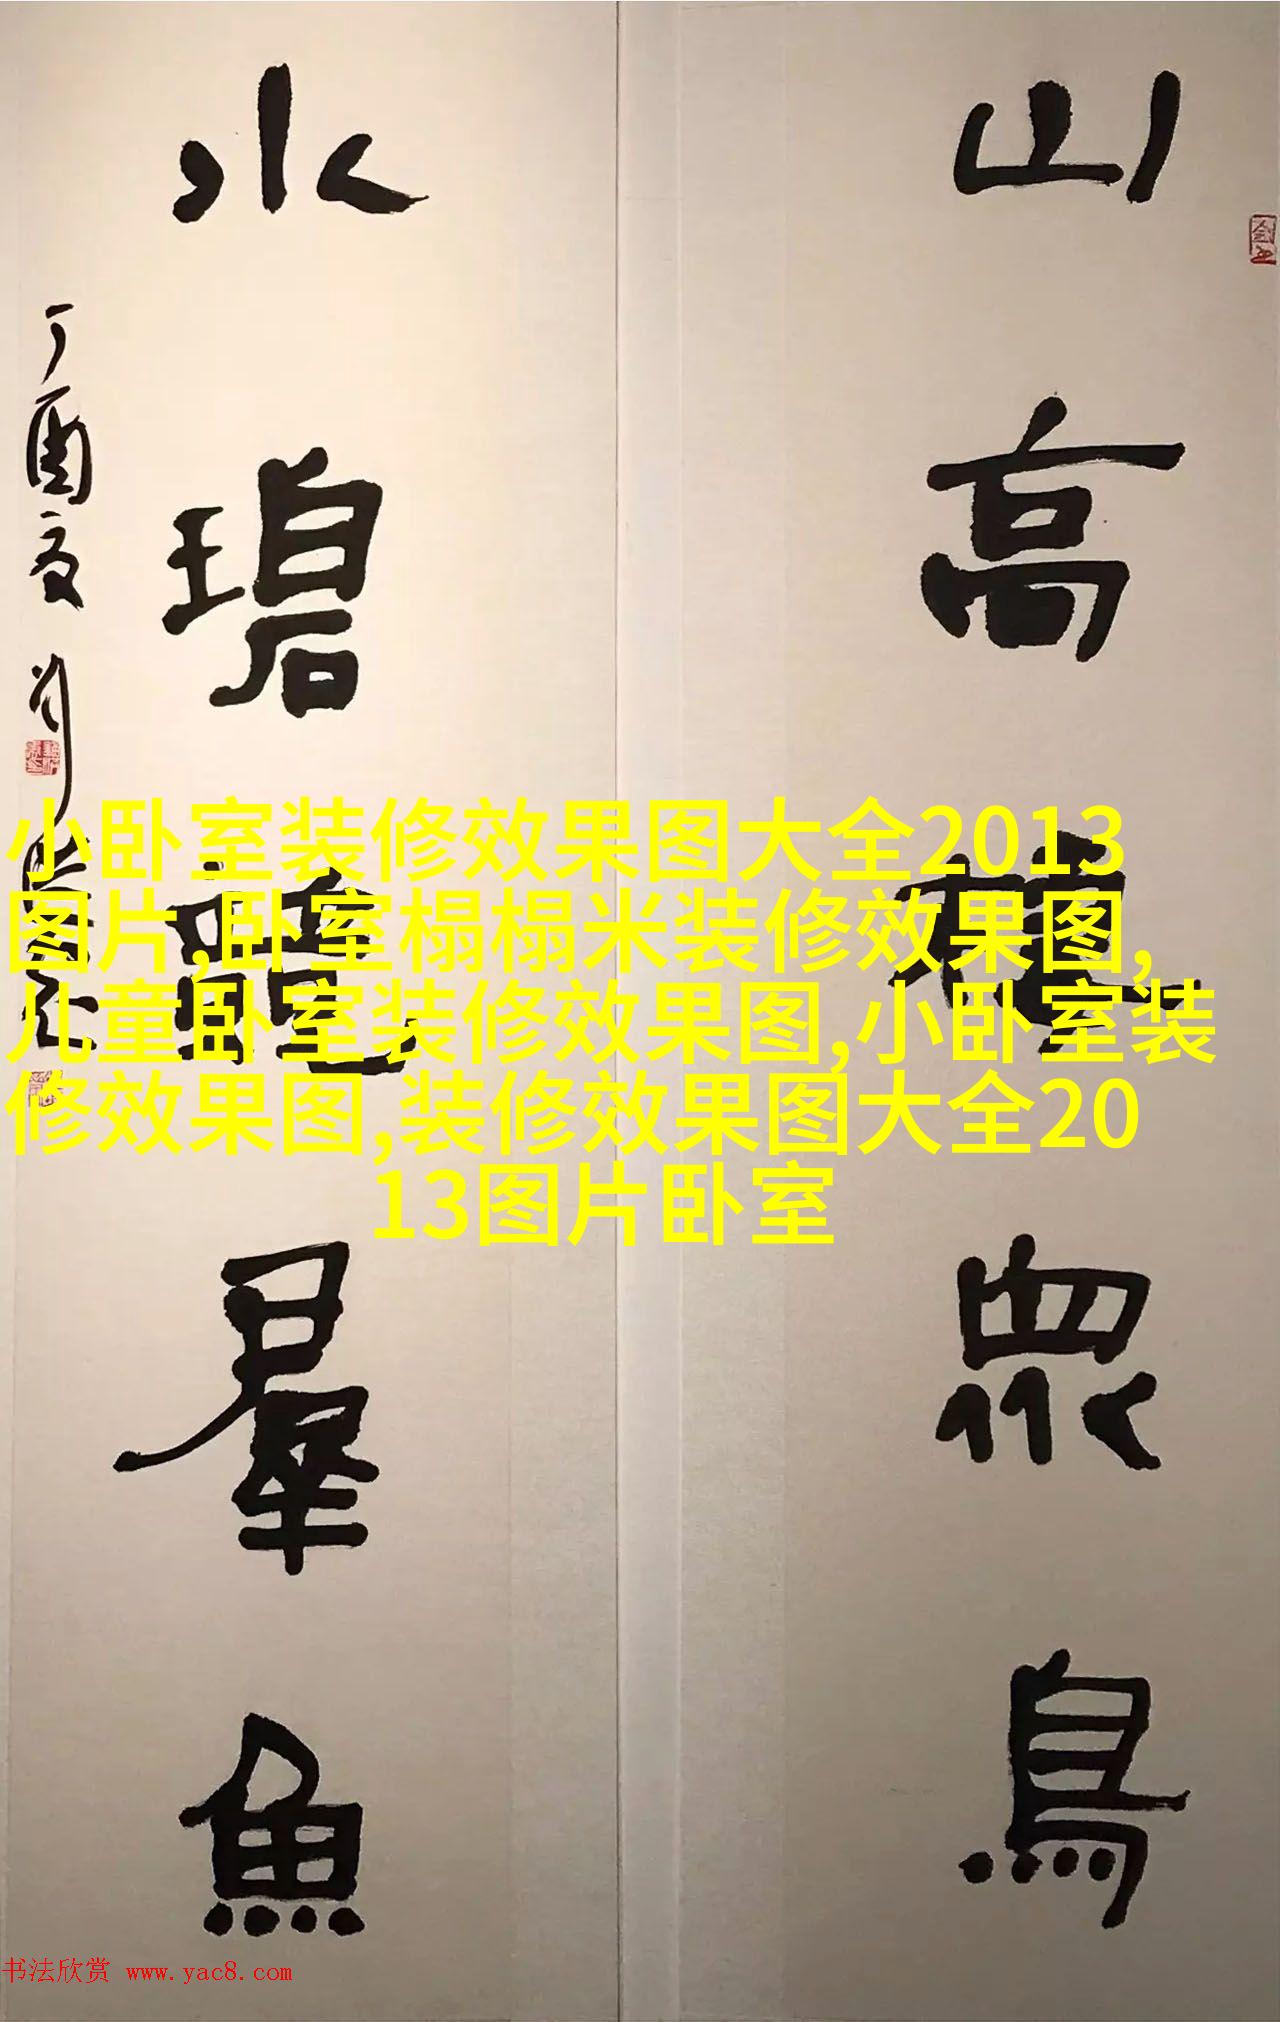 山高棲眾鳥
水碧龍羣魚
丁酉夏
小卧室装修效果图大全2013
图片,卧室榻榻米装修效果图,
儿童卧室装修效果图,小卧室装
修效果图,装修效果图大全20
13图片卧室
书法欣赏 www.yac8.com